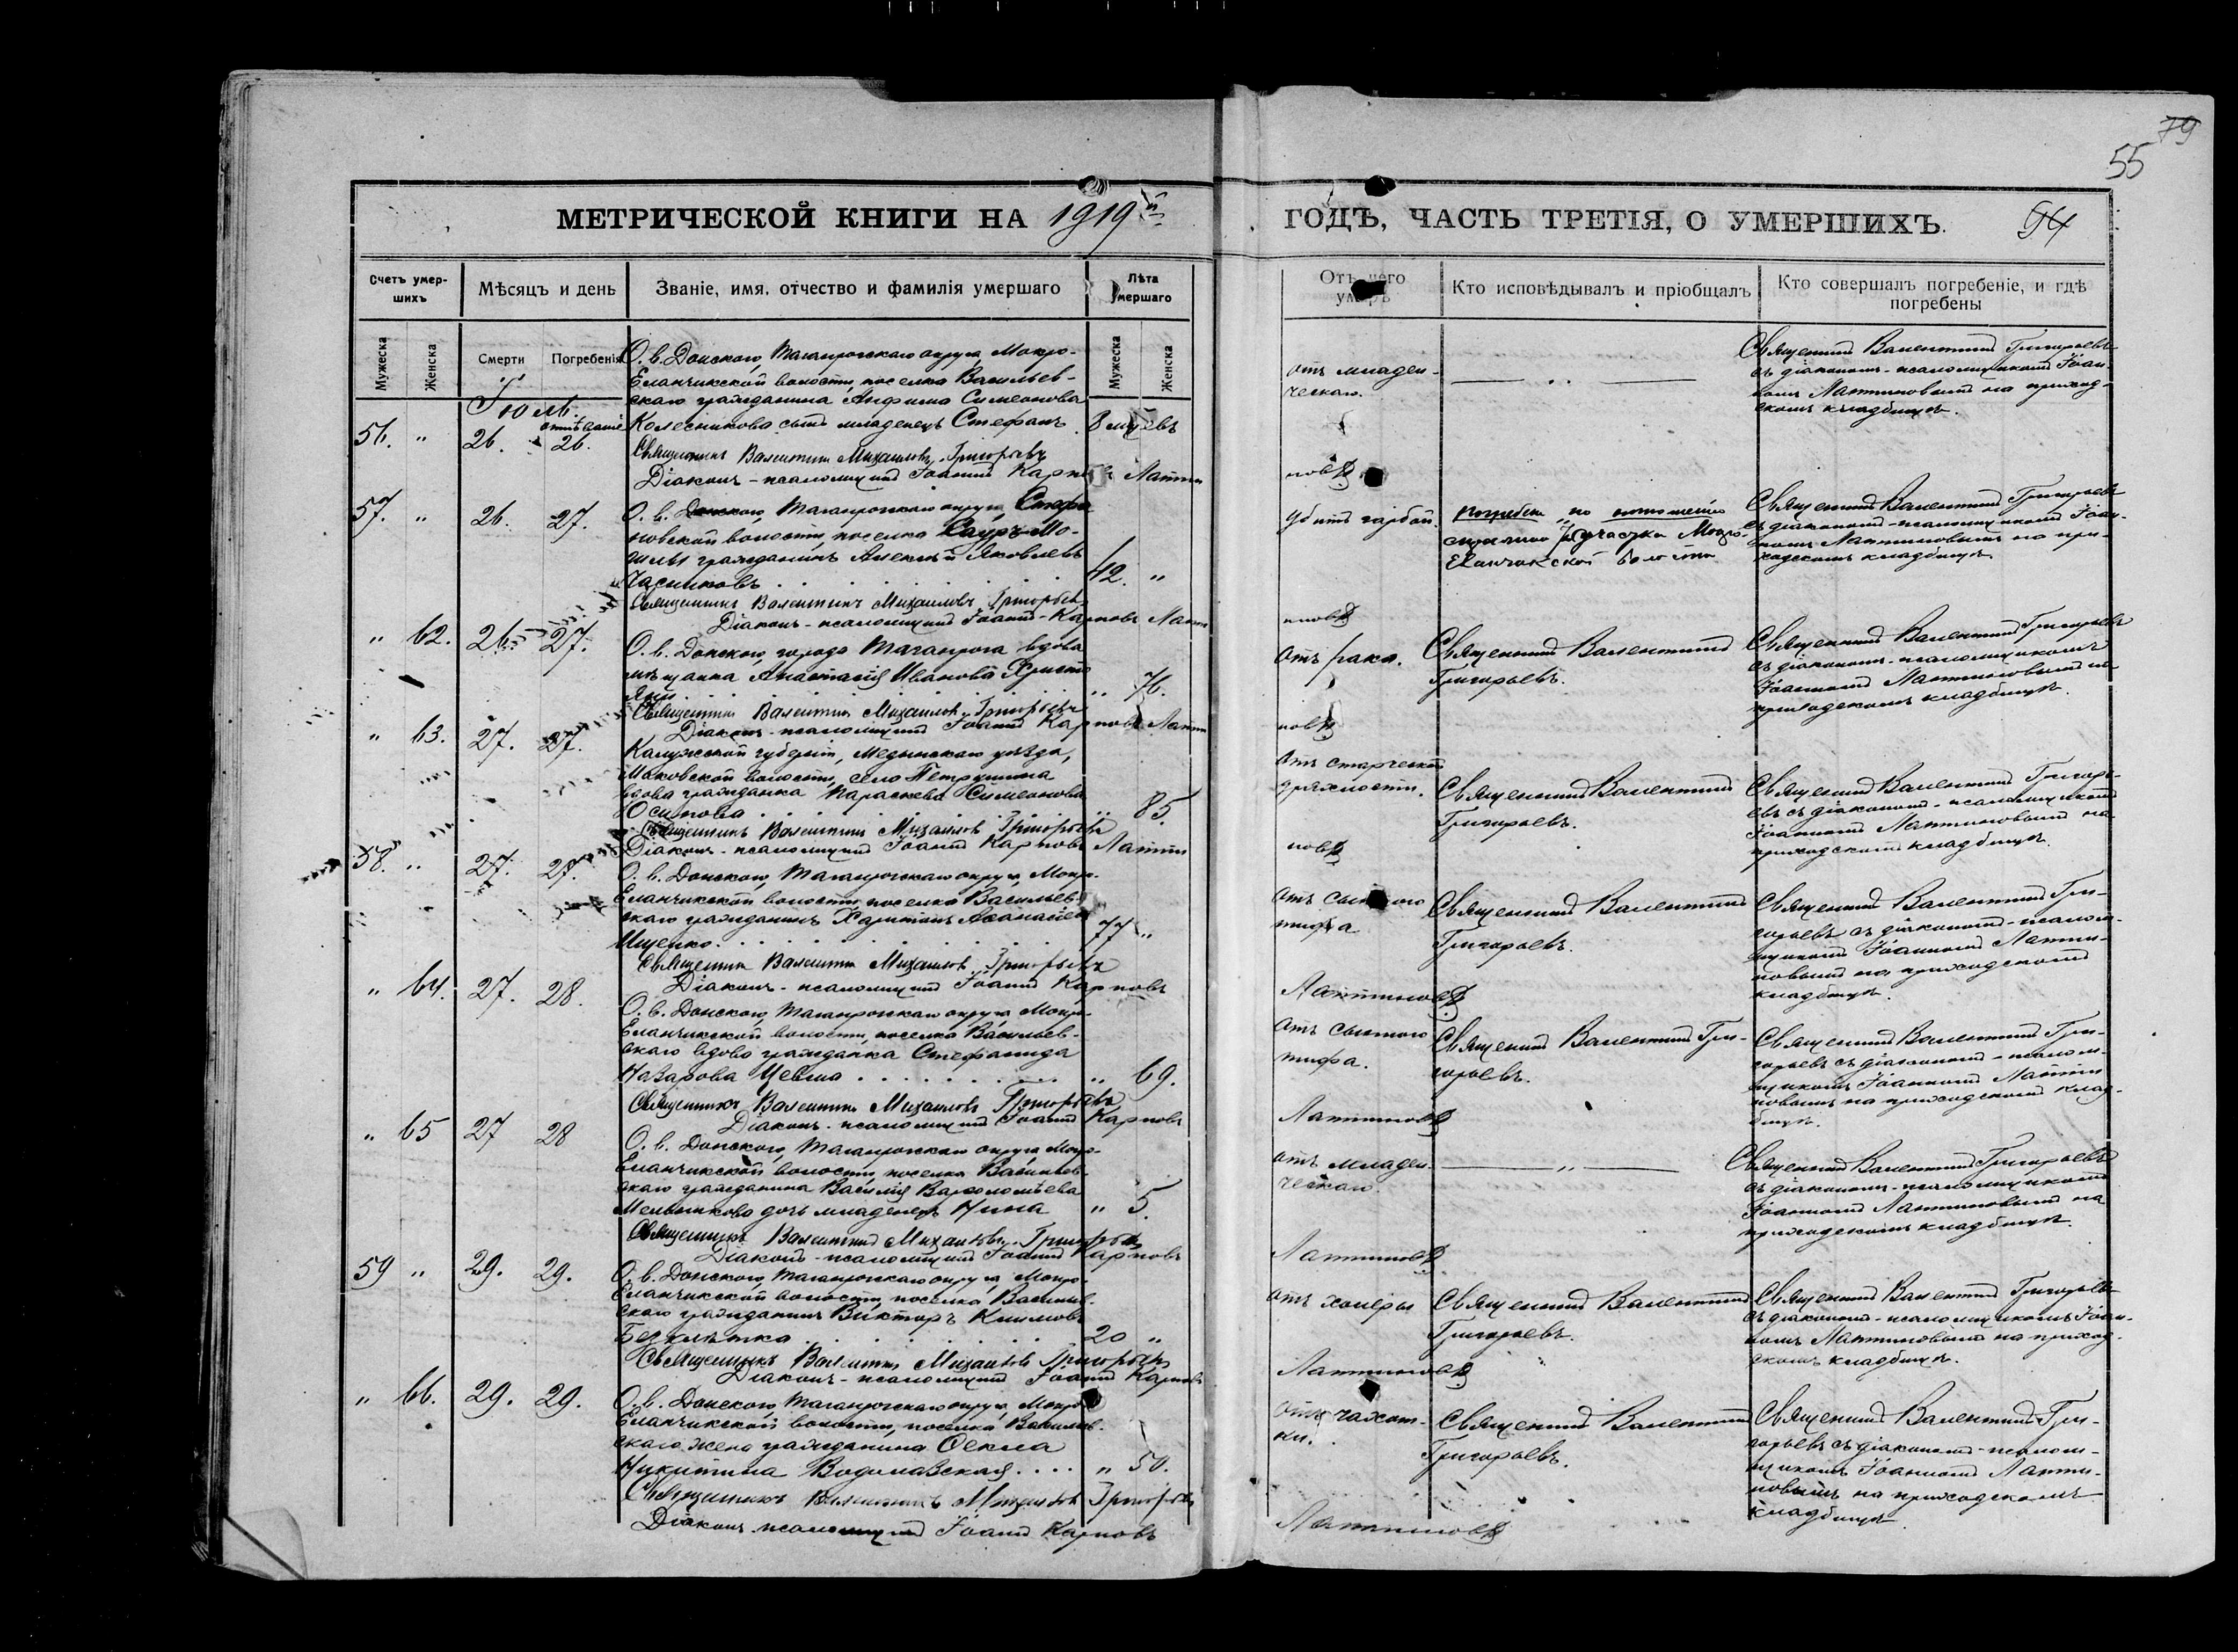 79
55
МЕТРИЧЕСКОЙ КНИГИ НА 1919й
ГОДЪ, ЧАСТЬ ТРЕТІЯ, О УМЕРШИХЪ.
54
Счетъ умер-
шихъ
Мѣсяцъ и день
Званіе, имя, отчество и фамилія умершаго
Лѣта
умершаго
Отъ чего
умеръ
Кто исповѣдывалъ и пріобщалъ
Кто совершалъ погребеніе, и гдѣ
погребены
Мужеска
Женска
Смерти
Погребенія
Мужеска
Женска
Іюль
отпѣваніе
56. " 26. 26.
О. в. Донского, Таганрогскаго округа, Мокро-
Еланчикской волости, поселка Васильев-
скаго гражданина Анфима Симеонова
Колесникова сынъ младенецъ Стефанъ 8 мцевъ
Священникъ Валентинъ Михаиловъ Григорьевъ
Діаконъ-псаломщикъ Іоаннъ Карповъ Лапти
новъ
отъ младен-
ческаго.
— " —
Священникъ Валентинъ Григорьевъ
съ діакономъ-псаломщикомъ Іоан-
номъ Лаптиновымъ на приход-
скомъ кладбищѣ.
57. " 26. 27.
О. в. Донского, Таганрогскаго округа, Стефа
новской волости, поселка Сауръ-Мо-
гилы гражданинъ Алексій Яковлевъ
Часниковъ 42. "
Священникъ Валентинъ Михаиловъ Григорьев
Діаконъ-псаломщикъ Іоаннъ Карповъ Лапти
новъ
Убитъ
Погребенъ по отношенію
участка Мокро-
Еланчикской волости
Священникъ Валентинъ Григорьевъ
съ діакономъ-псаломщикомъ Іоан-
номъ Лаптиновымъ на при-
ходскомъ кладбищѣ
" 62. 26. 27.
О. в. Донского, города Таганрога вдова
мѣщанка Анастасія Иванова Христо
Яни " 76.
Священникъ Валентинъ Михаиловъ Григорьевъ
Діаконъ-псаломщикъ Іоаннъ Карповъ Лапти
новъ
Отъ рака.
Священникъ Валентинъ
Григорьевъ.
Священникъ Валентинъ Григорьевъ
съ діакономъ-псаломщикомъ
Іоанномъ Лаптиновымъ на
приходскомъ кладбищѣ.
" 63. 27. 27.
Калужской губерніи, Медынскаго уѣзда,
Маковской волости, села Петрушина
вдова гражданка Параскева Симеонова
Осипова " 85.
Священникъ Валентинъ Михаиловъ Григорьевъ
Діаконъ-псаломщикъ Іоаннъ Карповъ Лапти
новъ
Отъ старческой
дряхлости.
Священникъ Валентинъ
Григорьевъ.
Священникъ Валентинъ Григорь-
евъ съ діакономъ-псаломщикомъ
Іоанномъ Лаптиновымъ на
приходскомъ кладбищѣ.
58. " 27. 27.
О. в. Донского, Таганрогскаго округа Мокро-
Еланчикской волости, поселка Васильев-
скаго гражданинъ Харитонъ Аѳанасіев
Ищенко 77 "
Священникъ Валентинъ Михаиловъ Григорьевъ
Діаконъ-псаломщикъ Іоаннъ Карповъ
Лаптиновъ
Отъ сыпного
тифа
Священникъ Валентинъ
Григорьевъ.
Священникъ Валентинъ Гри-
горьевъ съ діакономъ-псалом-
щикомъ Іоанномъ Лапти-
новымъ на приходскомъ
кладбищѣ.
" 64. 27. 28.
О. в. Донского, Таганрогскаго округа Мокро-
Еланчикской волости, поселка Васильев-
скаго вдова гражданка Стефанида
Назарова Цевма " 69.
Священникъ Валентинъ Михаиловъ Григорьевъ
Діаконъ-псаломщикъ Іоаннъ Карповъ
Лаптиновъ
Отъ сыпного
тифа.
Священникъ Валентинъ Гри-
горьевъ.
Священникъ Валентинъ Гри-
горьевъ съ діакономъ-псалом-
щикомъ Іоанномъ Лапти
новымъ на приходскомъ клад-
бищѣ.
" 65 27 28
О. в. Донского, Таганрогскаго округа Мокро-
Еланчикской волости, поселка Васильев-
скаго гражданина Василія Варѳоломѣева
Мельникова дочь младенецъ Нина " 5.
Священникъ Валентинъ Михаиловъ Григорьевъ
Діаконъ-псаломщикъ Іоаннъ Карповъ
Лаптиновъ
отъ младен-
ческаго.
— " —
Священникъ Валентинъ Григорьевъ
съ діакономъ-псаломщикомъ
Іоанномъ Лаптиновымъ на
приходскомъ кладбищѣ.
59 " 29. 29.
О. в. Донского, Таганрогскаго округа, Мокро-
Еланчикской волости, поселка Васильев-
скаго гражданинъ Викторъ Климовъ
Безклѣтка 20 "
Священникъ Валентинъ Михаиловъ Григорьевъ
Діаконъ-псаломщикъ Іоаннъ Карповъ
Лаптиновъ
отъ холеры
Священникъ Валентинъ
Григорьевъ.
Священникъ Валентинъ Григорьевъ
съ діакономъ-псаломщикомъ Іоан-
номъ Лаптиновымъ на приход-
скомъ кладбищѣ.
" 66. 29. 29.
О. в. Донского, Таганрогскаго округа, Мокро
Еланчикской волости, поселка Васильев-
скаго жена гражданина Ѳекла
Никитина Водолазская " 50.
Священникъ Валентинъ Михаиловъ Григорьевъ
Діаконъ-псаломщикъ Іоаннъ Карповъ
Лаптиновъ
отъ чахот-
ки.
Священникъ Валентинъ
Григорьевъ.
Священникъ Валентинъ Гри-
горьевъ съ діакономъ-псалом-
щикомъ Іоанномъ Лапти-
новымъ на приходскомъ
кладбищѣ.